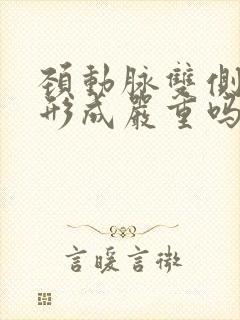 頚動脉雙側
形成嚴重嗎
言暖言微